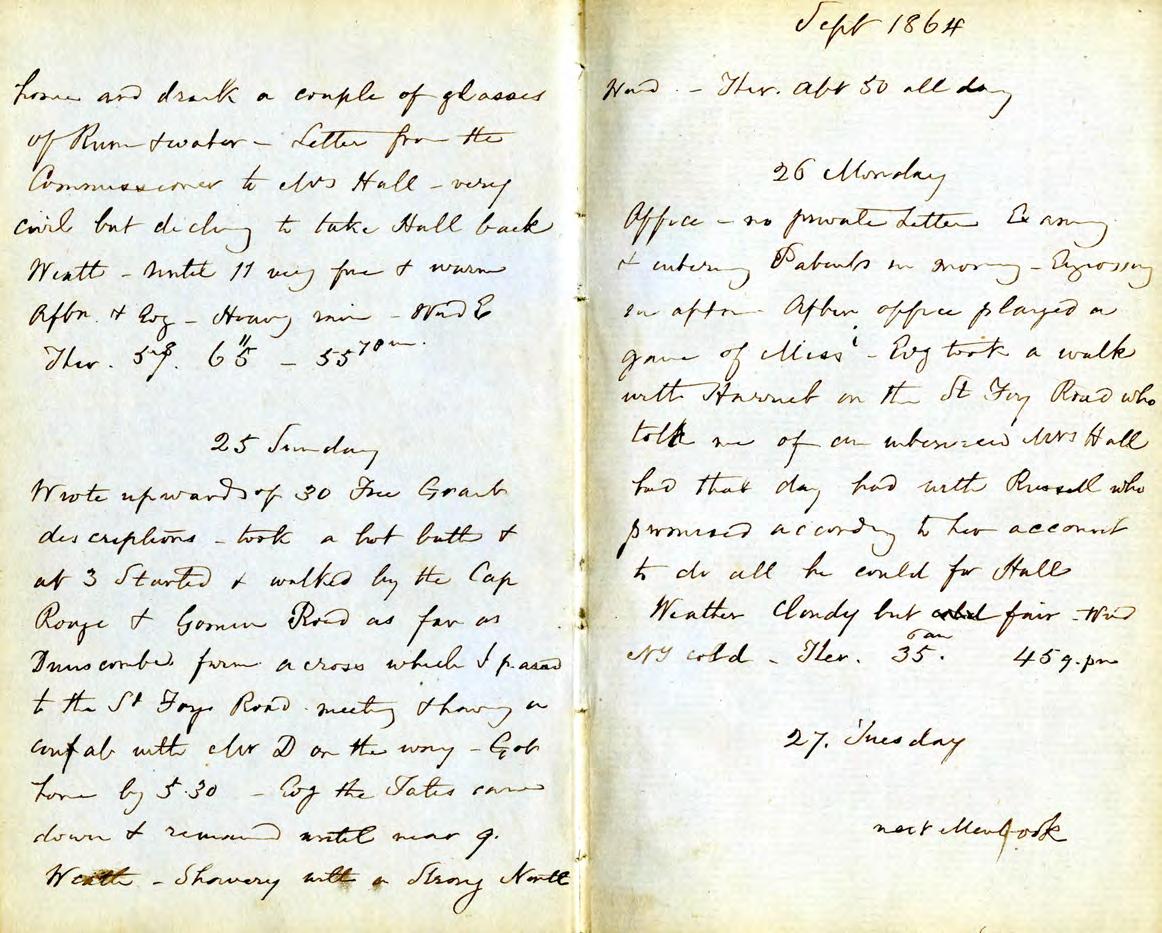 home and drank a couple of glasses
of Rum & water – Letter from the
Commissioner to Mrs Hall – very
civil but decling to take Hall back
Weath – until 11 very fine & warm
Aftn. & Evg – Heavy rain – Wind E
Ther. 65 – 55 10 pm.
25 Sunday
Wrote upwards of 30 Free Grant
descriptions – took a hot bath &
at 3 Started & walked by the Cap
Rouge & Gomin Road as far as
Dunscombe farm across which I passed
to the St Foys Road meeting & having a
confab with Mr D on the way – Got
home by 5.30 – Evg the Tates came
down & remained until near 9.
Weath – Showery with a Strong North
Sept 1864
Wind. – Ther. abt 50 all day
26 Monday
Office – no private Letter Examg
& entering Patents in morng – Engrossing
in aftn – After office played a
game of 'Miss' – Evg took a walk
with on the St Foy Road who
told me of an interview Mrs Hall
had that day had with Russell who
promised accordg to her account
to do all he could for Hall
Weather Cloudy but fair – Wind
cold – Ther. 35. 6 am 45 9. pm
27. Tuesday
next Men book